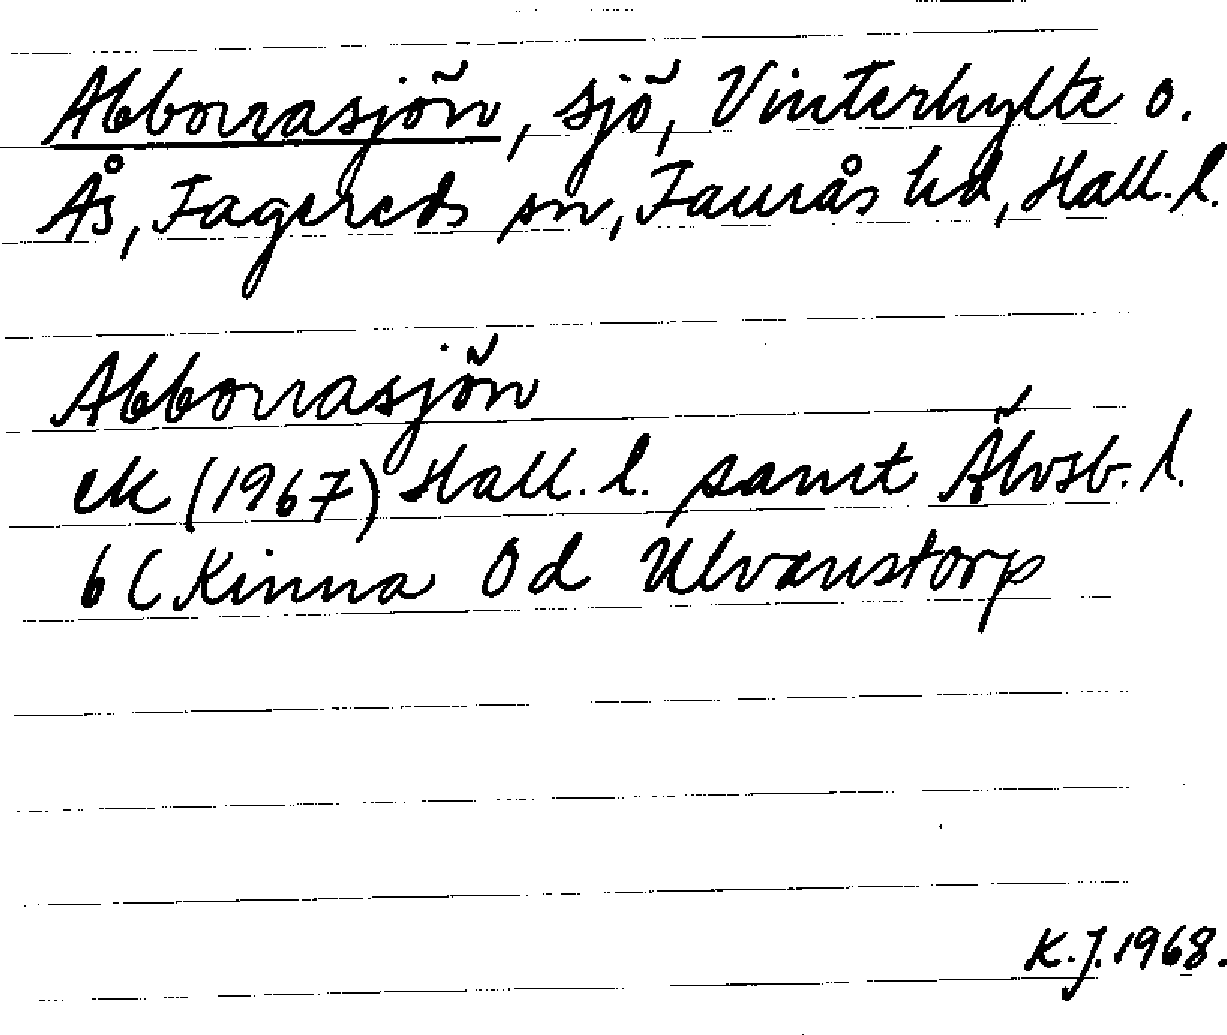 Abborrasjön, sjö, Vinterhylte o.
Ås, Fagereds sn, Faurås hd, Hall. l.
Abborrasjön
ek (1967) Hall. l. samt Älvsb. l.
6 C Kinna 0 d Ulvanstorp
K. J. 1968.